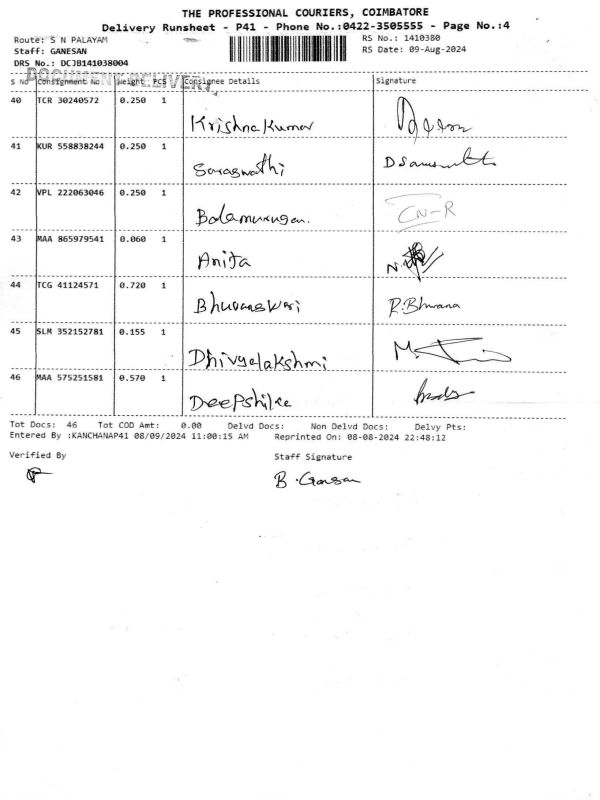 THE PROFESSIONAL COURIERS, COIMBATORE
Delivery Runsheet - P41 - Phone No.:0422-3505555 - Page No.:4
Route: S N PALAYAM RS No.: 1410380
Staff: GANESAN RS Date: 09-Aug-2024
DRS No.: DCJB141038004
DOCUMENT DELIVERY
S No Consignment No. Weight PCS Consignee Details Signature
40 TCR 30240572 0.250 1
Krishna Kumar
41 KUR 558838244 0.250 1
Saraswathi
42 VPL 222063046 0.250 1
Balamurugan. CN-R
43 MAA 865979541 0.060 1
Anita
44 TCG 41124571 0.720 1
Bhuvaneswari R.Bhuvana
45 SLM 352152781 0.155 1
Dhivyelakshmi
46 MAA 575251581 0.570 1
Deepshike
Tot Docs: 46 Tot COD Amt: 0.00 Delvd Docs: Non Delvd Docs: Delvy Pts:
Entered By :KANCHANAP41 08/09/2024 11:00:15 AM Reprinted On: 08-08-2024 22:48:12
Verified By Staff Signature
B. Ganesan